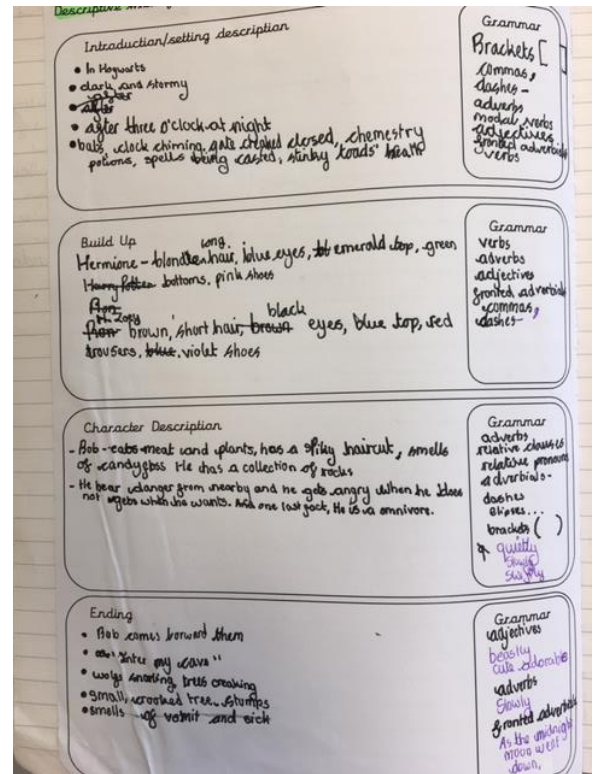 Descriptive
Introduction/setting description
• In Hogwarts
• dark and stormy
after
• after
• after three o'clock at night
• bats, clock chiming, gate creaked closed, chemestry
potions, spells being casted, stinky "toads" breath
Grammar
Brackets [ ]
commas,
dashes -
adverbs
modal verbs
adjectives
fronted adverbials
verbs
Build Up
long.
Hermione - blonde hair, blue eyes, emerald top, green
Harry Potter bottoms. pink shoes
Ron
black
Ron brown, short hair, brown eyes, blue top, red
trousers, blue, violet shoes
Grammar
verbs
adverbs
adjectives
fronted adverbials
commas,
dashes-
Character Description
- Bob - eats meat and plants, has a spiky haircut, smells
of candyfloss He has a collection of rocks
- He hear danger from nearby and he gets angry when he does
not gets when he wants. And one last fact, He is a omnivore.
Grammar
adverbs
relative clauses
relative pronouns
adverbials-
dashes
elipses...
brackets ( )
quietly
slowly
Ending
• Bob comes forward them
• "Enter my cave"
• wolfs snarling, trees creaking
• small, crooked tree stumps
• smells of vomit and sick
Grammar
adjectives
beastly
cute adorable
adverbs
Slowly
fronted adverbials
As the midnight
moon went
down,